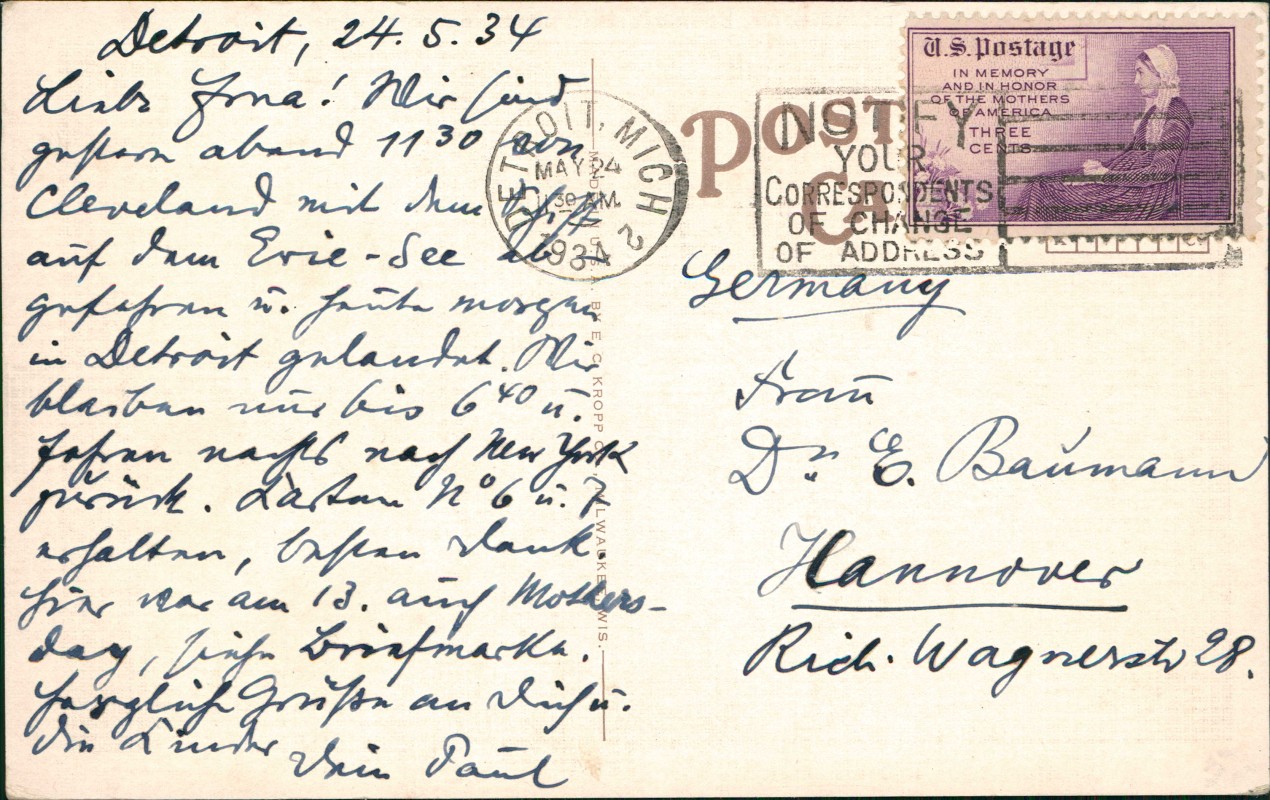 Detroit, 24.5.34
Liebe Erna! Wir sind
gestern abend 11 30 von
Cleveland mit dem Schiff
auf dem Erie-See ab-
gefahren u. heute morgen
in Detroit gelandet. Wir
bleiben nur bis 6 40 u.
fahren nachts nach New York
zurück. Karten No 6 u. 7
erhalten, besten Dank
hier war am 13. auch Mothers-
day, siehe Briefmarke.
herzliche Grüße an Dich u.
die Kinder
Dein Paul
DETROIT, MICH 2
MAY 24
30 AM.
1934
POST CA
NOTIFY
YOUR
CORRESPONDENTS
OF CHANGE
OF ADDRESS
U.S. Postage
IN MEMORY
AND IN HONOR
OF THE MOTHERS
OF AMERICA
THREE
CENTS
BY E. C. KROPP CO., MILWAUKEE, WIS.
Germany
Frau
Dr. E. Baumann
Hannover
Rich. Wagnerstr 28.